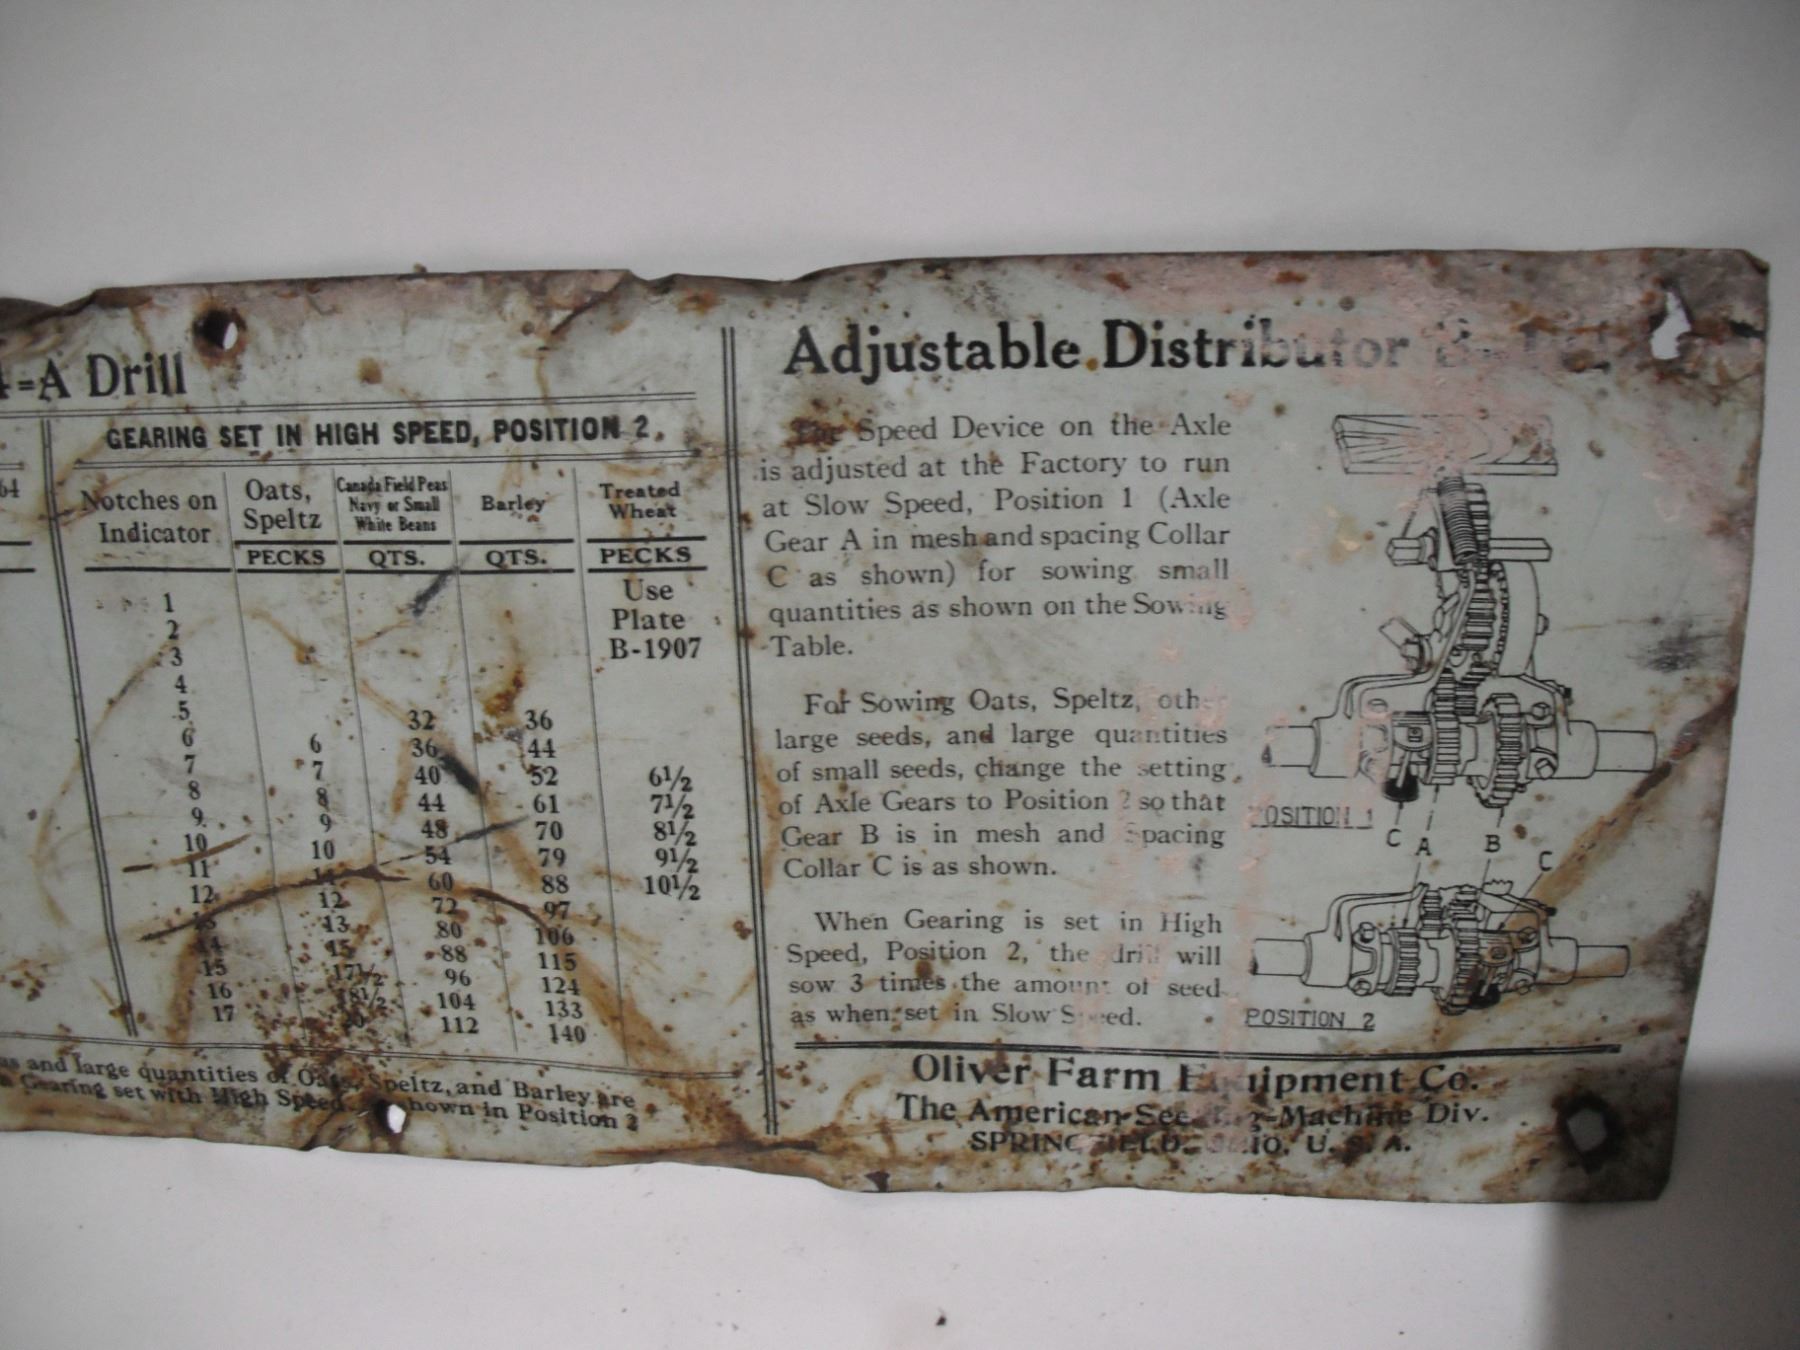 4=A Drill
64
GEARING SET IN HIGH SPEED, POSITION 2.
Notches on Indicator
Oats, Speltz
Canada Field Peas Navy or Small White Beans
Barley
Treated Wheat
PECKS QTS. QTS. PECKS
1 Use
2 Plate
3 B-1907
4
5 32 36
6 6 36 44
7 7 40 52 6½
8 8 44 61 7½
9 9 48 70 8½
10 10 54 79 9½
11 11 60 88 10½
12 12 72 97
13 13 80 106
14 15 88 115
15 17½ 96 124
16 18½ 104 133
17 20 112 140
and large quantities of Oats, Speltz, and Barley are
Gearing set with High Speed shown in Position 2
Adjustable Distributor
The Speed Device on the Axle
is adjusted at the Factory to run
at Slow Speed, Position 1 (Axle
Gear A in mesh and spacing Collar
C as shown) for sowing small
quantities as shown on the Sowing
Table.
For Sowing Oats, Speltz, other
large seeds, and large quantities
of small seeds, change the setting
of Axle Gears to Position 2 so that
Gear B is in mesh and Spacing
Collar C is as shown.
When Gearing is set in High
Speed, Position 2, the drill will
sow 3 times the amount of seed
as when set in Slow Speed.
POSITION 1
C A B C
POSITION 2
Oliver Farm Equipment Co.
The American Seeding-Machine Div.
SPRINGFIELD, OHIO, U. S. A.